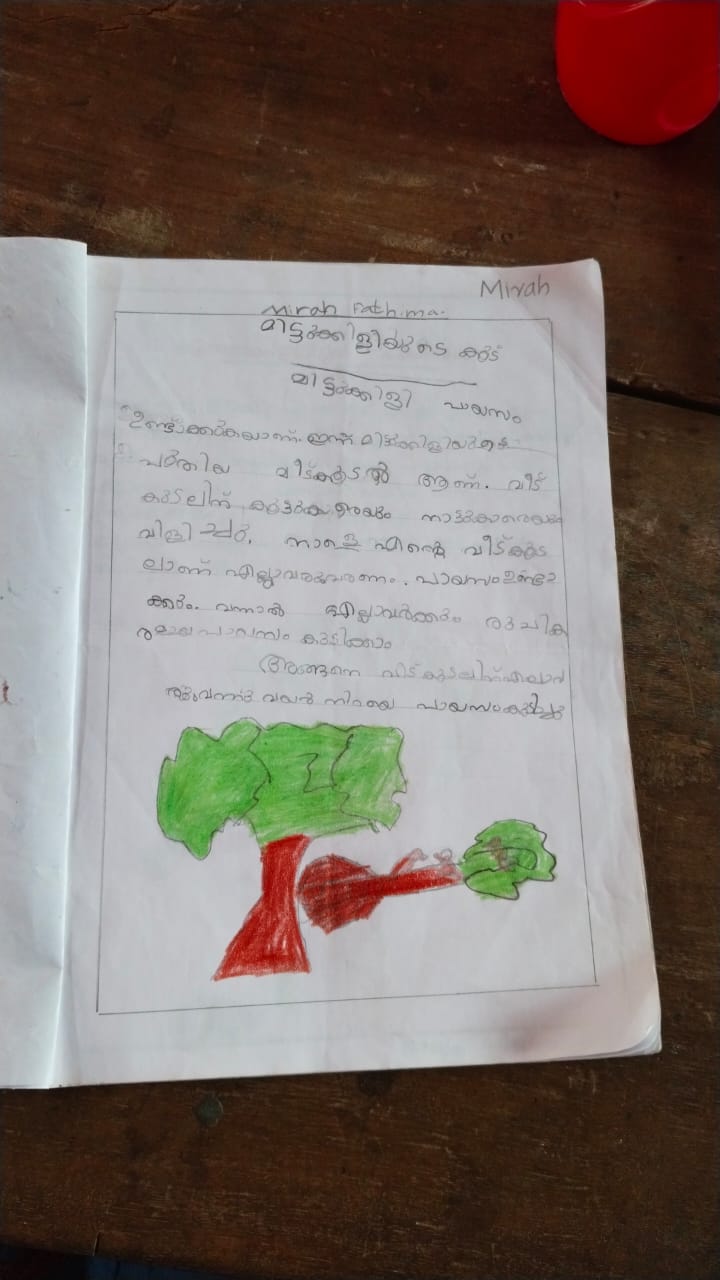 Mirah
Mirah Fathima.
മിട്ടുക്കിളിയുടെ കൂട്
മിട്ടുക്കിളി പായസം
ഉണ്ടാക്കുകയാണ്. ഇന്ന് മിട്ടുക്കിളിയുടെ
പുതിയ വീട്കൂടൽ ആണ്. വീട്
കൂടലിന് കൂട്ടുകാരെയും നാട്ടുകാരെയും
വിളിച്ചു. നാളെ എന്റെ വീട്കൂട
ലാണ് എല്ലാവരുംവരണം. പായസം ഉണ്ടാ
ക്കും. വന്നാൽ എല്ലാവർക്കും രുചിക
രമായ പായസം കുടിക്കാം
അങ്ങനെ വീട്കൂടലിന് എലാവ
രുംവന്നു വയർ നിറയെ പായസംകുടിച്ചു